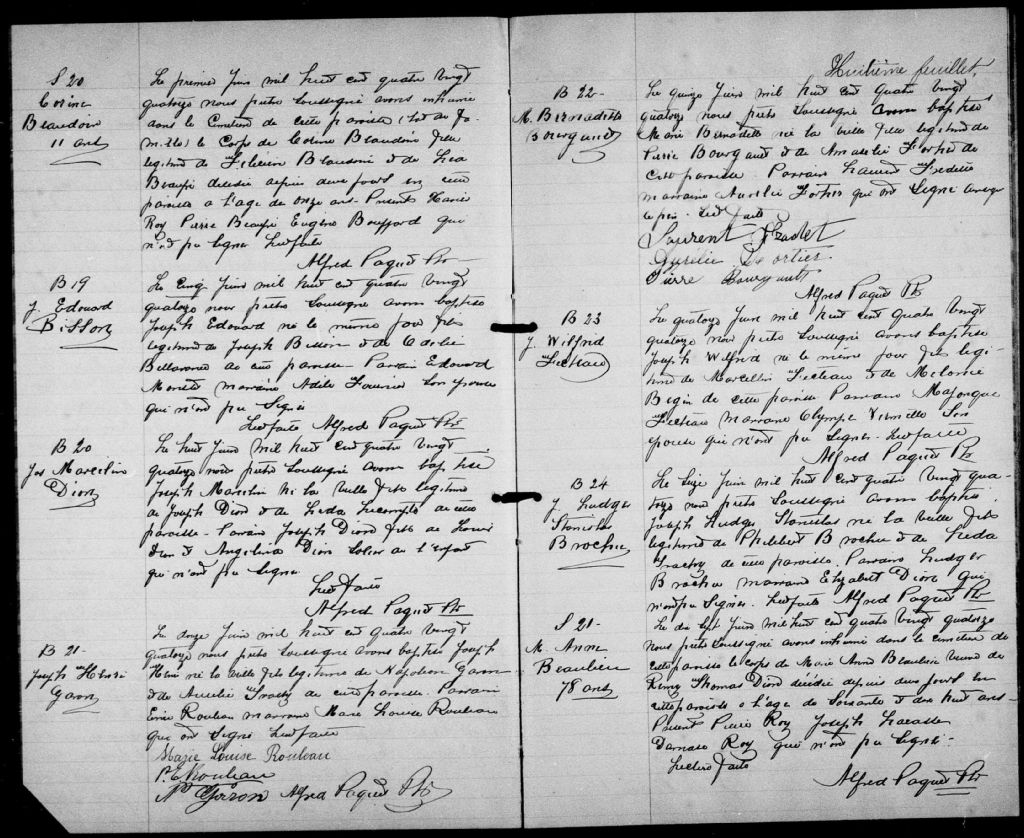 S 20
Corine
Beaudoin
11 ans
Le premier Juin mil huit cent quatre vingt
quatorze nous prêtre soussigné avons inhumé
dans le Cimetière de cette paroisse (lot de fa-
mille) le Corps de Corine Beaudoin fille
legitime de Beaudoin & de Lea
Beaupré décédée depuis deux jours en cette
paroisse a l'age de onze ans. Présents
Roy Pierre Beaupré Eugène Bouffard qui
n'ont pu signer Lect faite
Alfred Paquet Ptr
B 19
J. Edouard
Bisson
Le cinq Juin mil huit cent quatre vingt
quatorze nous prêtre soussigné avons baptisé
Joseph Edouard né le même jour fils
legitime de Joseph Bisson & de
Bellavance de cette paroisse Parrain Edouard
marraine Adèle Fournier son épouse
qui n'ont pu signer
Lect faite Alfred Paquet Ptr
B 20
Jos Marcelin
Dion
Le huit Juin mil huit cent quatre vingt
quatorze nous prêtre soussigné avons baptisé
Joseph Marcelin né la veille fils legitime
de Joseph Dion & de Leda Lecompte de cette
paroisse. Parrain Joseph Dion fils de
Dion & Angelina Dion de l'enfant
qui n'ont pu signer
Lect faite
Alfred Paquet Ptr
B 21
Joseph Henri
Garon
Le onze Juin mil huit cent quatre vingt
quatorze nous prêtre soussigné avons baptisé Joseph
Henri né la veille fils legitime de Napoleon Garon
& de Aurelie Trachy de cette paroisse. Parrain
Rouleau marraine Marie Louise Rouleau
qui ont signé Lect faite
Marie Louise Rouleau
P. E. Rouleau
Np Garon Alfred Paquet Ptr
Huitième feuillet.
B 22
M. Bernadette
Bourgault
Le quinze Juin mil huit cent quatre vingt
quatorze nous prêtre soussigné avons baptisé
Marie Bernadette née la veille fille legitime de
Pierre Bourgault & de Amarilie Fortier de
cette paroisse Parrain Laurent Fradette
marraine Aurelie Fortier qui ont signé avec
le père. Lect faite
Laurent Fradet
Aurelie Fortier
Pierre Bourgault
Alfred Paquet Ptr
B 23
J. Wilfrid
Fecteau
Le quatorze Juin mil huit cent quatre vingt
quatorze nous prêtre soussigné avons baptisé
Joseph Wilfrid né le même jour fils legi-
time de Marcellin Fecteau & de
Begin de cette paroisse Parrain Majorique
Fecteau marraine Olympe son
épouse qui n'ont pu signer. Lect faite
Alfred Paquet Ptr
B 24
J. Ludger
Stanislas
Brochu
Le seize Juin mil huit cent quatre vingt qua-
torze nous prêtre soussigné avons baptisé
Joseph Ludger Stanislas né la veille fils
legitime de Philibert Brochu & de Leda
Trachy de cette paroisse. Parrain Ludger
Brochu marraine Elizabet Dion qui
n'ont pu signer. Lect faite Alfred Paquet Ptr
S 21
M. Anne
Beaulieu
78 ans
Le dix sept Juin mil huit cent quatre vingt quatorze
nous prêtre soussigné avons inhumé dans le cimetière de
cette paroisse le corps de Marie Anne Beaulieu veuve de
Remy Thomas Dion décédée depuis deux jours en
cette paroisse a l'age de soixante & dix huit ans
Présents Pierre Roy Joseph Lacasse
Damase Roy qui n'ont pu signer
Lecture faite
Alfred Paquet Ptr